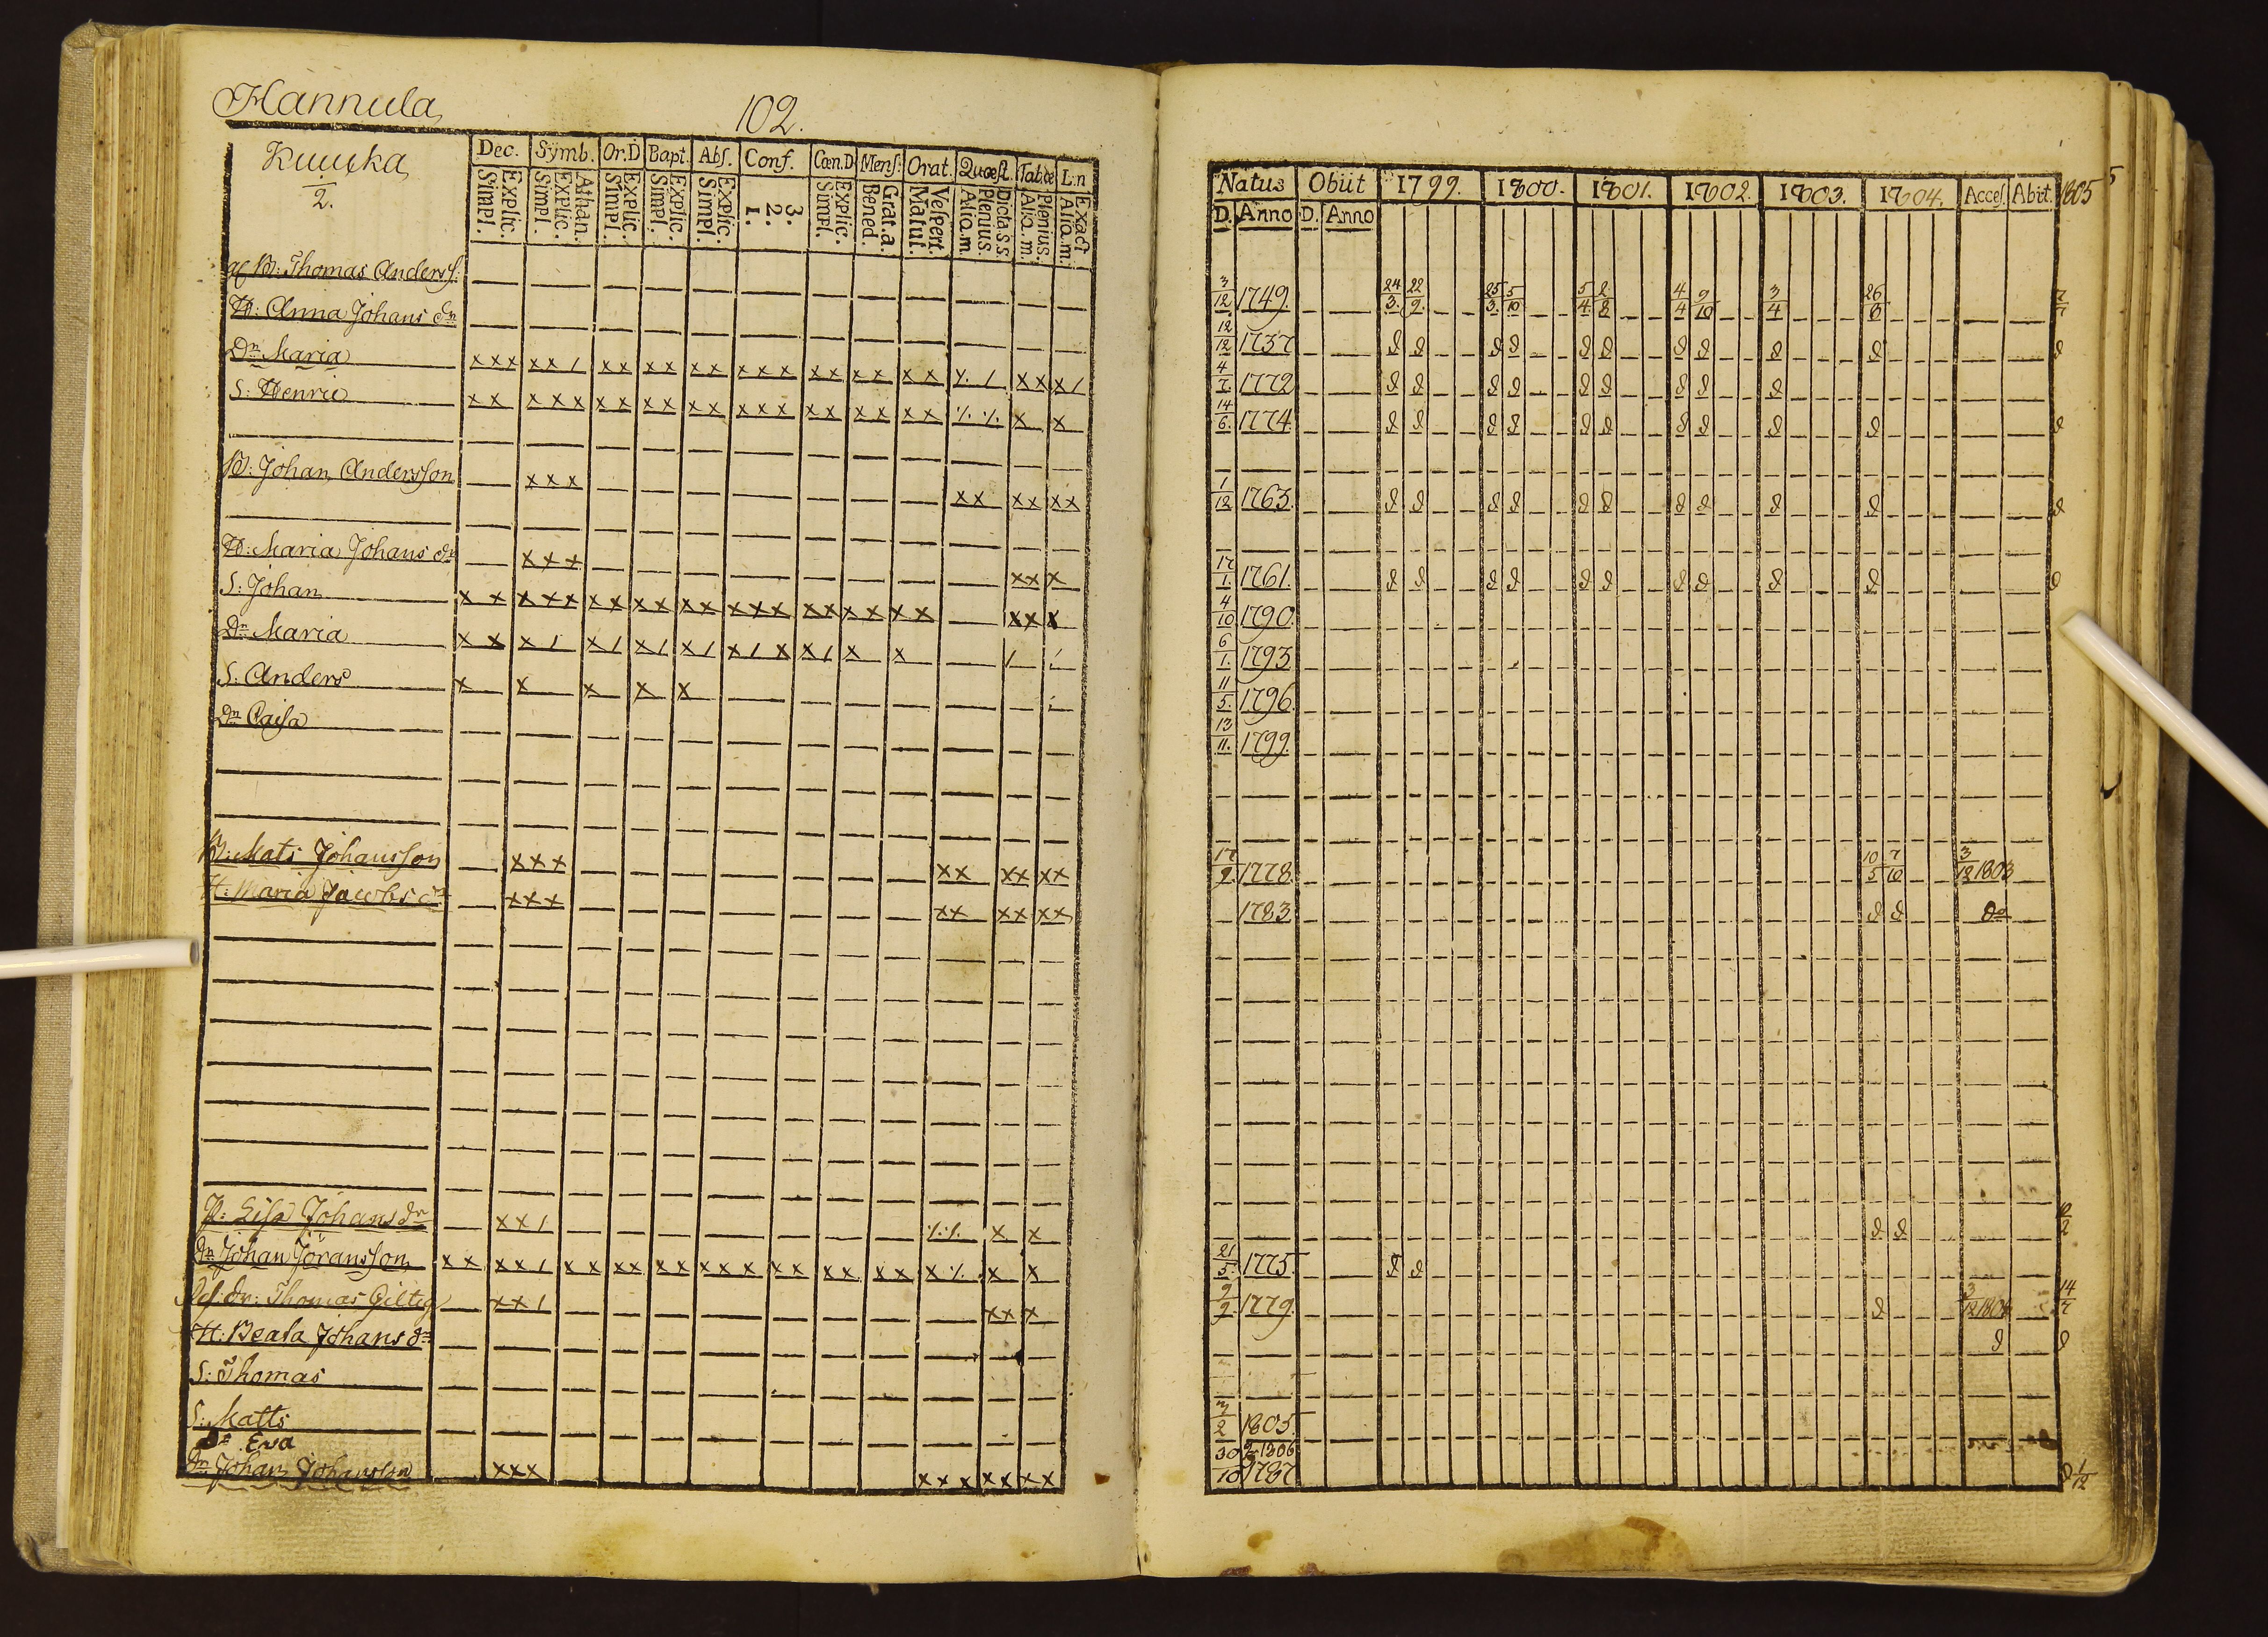 Hannula
102.
Kuucka
2.
Dec. Symb. Or.D Bapt. Abs. Conf. Cœn.D Mens: Orat. Quæst. Tab:œ L:n
Explic. Simpl. Athan. Explic. Simpl. Explic. Simpl. Explic. Simpl. Explic. Simpl. 3. 2. 1. Explic. Simpl. Grat.a. Bened. Vespert. Matut. Dicta S.S Plenius. Alio.m. Plenius. Alio.m. Exact Alio.m.
af B: Thomas Anders S:
H: Anna Johans dr
Dr Maria xxx xx/ xx xx xx xxx xx xx xx x/ xx x/
S: Henric xx xxx xx xx xx xxx xx xx xx x x
B: Johan Andersson xxx xx xx xx
H: Maria Johans dr xxx xx x
S: Johan xx xxx xx xx xx xxx xx xx xx xx x
Dr Maria xx x/ x/ x/ x/ x/x x/ x x / /
S: Anders x x x x x
Dr Caisa
B: Mats Johansson xxx xx xx xx
H: Maria Jacobs dr xxx xx xx xx
P: Lisa Johans dr xx/ x x
Dr Johan Joransson xx xx/ xx xx xx xxx xx xx xx x x
Dr: Thomas xx/ xx x
H: Beata Johans dr
S: Thomas
S: Matts
Dr Eva
Dr Johan Johansson xxx xxx xx xx
Natus Obiit 1799. 1800. 1801. 1802. 1803. 1804. Acces. Abiit. 1805
D. Anno D. Anno
3/12 1749. 24/3. 22/9. 25/3. 5/10 5/4. 2/8 4/4 9/10 3/4 26/8 7/7
12/12 1737 d d d d d d d d d d d
4/7. 1772 d d d d d d d d d
14/6. 1774. d d d d d d d d d d d
1/12 1763. d d d d d d d d d d d
17/1. 1761. d d d d d d d d d d d
4/10 1790.
6/1. 1793
11/5. 1796.
13/11. 1799.
17/9. 1778. 10/5 7/10 3/12 1803
1783 d d do
d d
21/5. 1775 d d
9/9. 1779. d 3/12 1804 14/7
d d
3/2 1805.
30/2 1806
10 1787 d 1/12